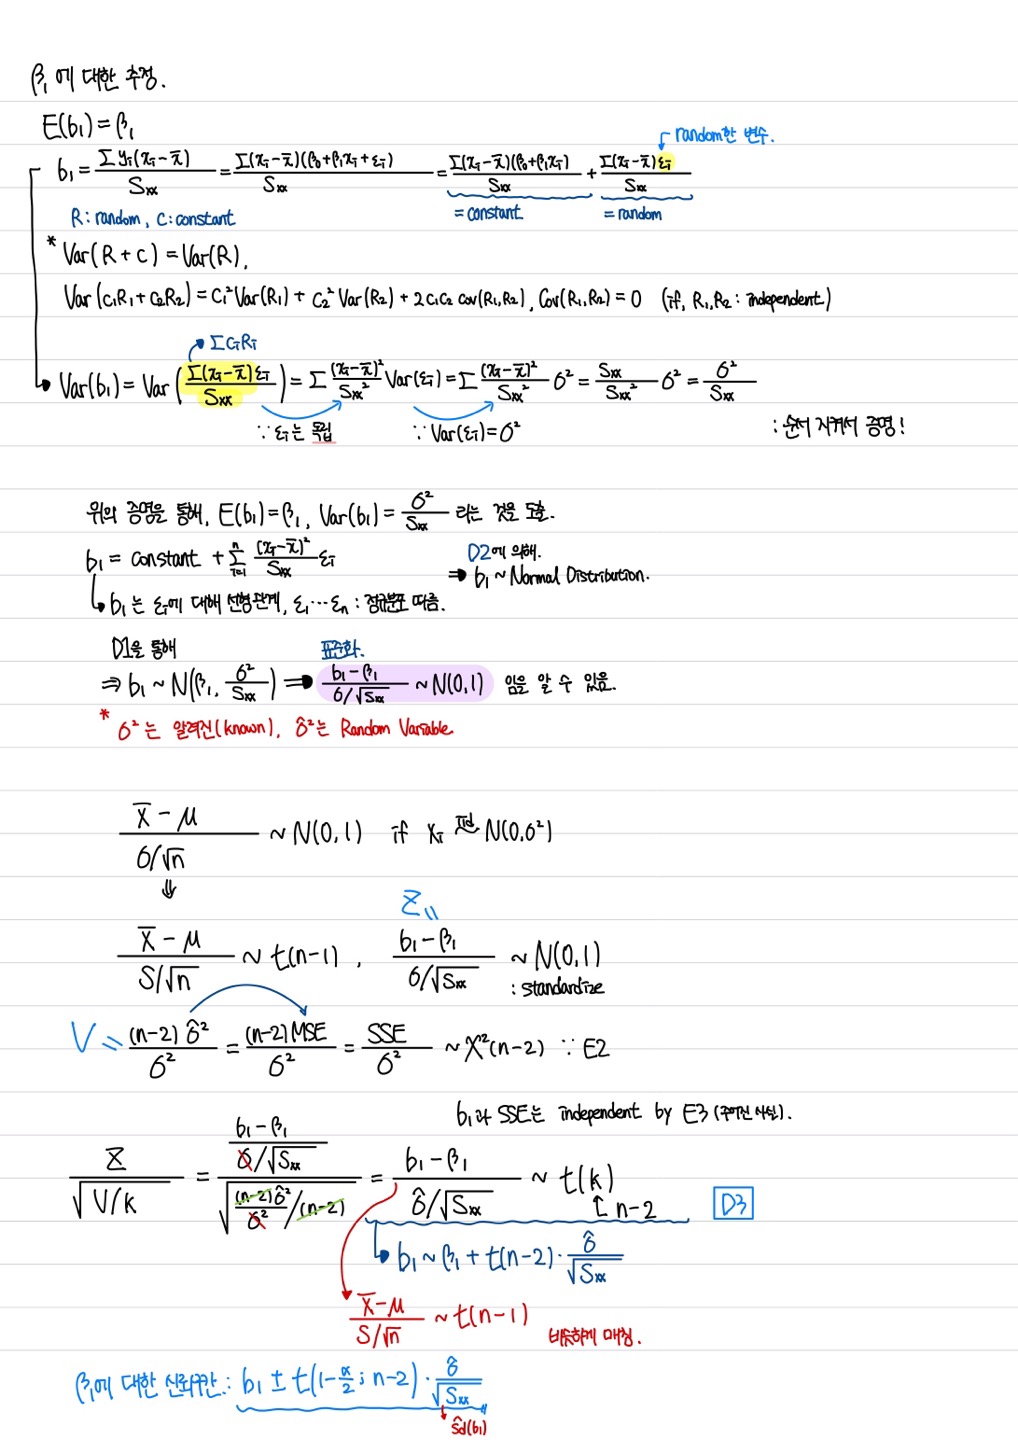 β₁에 대한 추정.
E(b₁) = β₁
random한 변수.
b₁ = Σyᵢ(xᵢ-x̄)/Sxx = Σ(xᵢ-x̄)(β₀+β₁xᵢ+εᵢ)/Sxx = Σ(xᵢ-x̄)(β₀+β₁xᵢ)/Sxx + Σ(xᵢ-x̄)εᵢ/Sxx
= constant = random
R: random, C: constant
* Var(R+c) = Var(R),
Var(c₁R₁+c₂R₂) = c₁²Var(R₁) + c₂²Var(R₂) + 2c₁c₂ cov(R₁,R₂), Cov(R₁,R₂) = 0 (if, R₁,R₂: independent)
ΣcᵢRᵢ
Var(b₁) = Var(Σ(xᵢ-x̄)εᵢ/Sxx) = Σ (xᵢ-x̄)²/Sxx² Var(εᵢ) = Σ (xᵢ-x̄)²/Sxx² σ² = Sxx/Sxx² σ² = σ²/Sxx
∵ εᵢ는 독립 ∵ Var(εᵢ)=σ² : 순서 지켜서 증명!
위의 증명을 통해, E(b₁)=β₁, Var(b₁) = σ²/Sxx 라는 것을 도출.
b₁ = constant + Σᵢ₌₁ⁿ (xᵢ-x̄)²/Sxx εᵢ
D2에 의해.
⇒ b₁ ~ Normal Distribution.
b₁는 εᵢ에 대해 선형관계, ε₁⋯εₙ: 정규분포 따름.
D1을 통해 표준화.
⇒ b₁ ~ N(β₁, σ²/Sxx) ⇒ (b₁-β₁)/(σ/√Sxx) ~ N(0,1) 임을 알 수 있음.
* σ²는 알려진(known), σ̂²는 Random Variable
(X̄-μ)/(σ/√n) ~ N(0,1) if Xᵢ iid~ N(0,σ²)
⇓
Z =
(X̄-μ)/(S/√n) ~ t(n-1), (b₁-β₁)/(σ/√Sxx) ~ N(0,1)
: standardize
V = (n-2)σ̂²/σ² = (n-2)MSE/σ² = SSE/σ² ~ χ²(n-2) ∵ E2
b₁과 SSE는 independent by E3 (주어진 사실).
Z/√(V/k) = ((b₁-β₁)/(σ/√Sxx))/√((n-2)σ̂²/σ²/(n-2)) = (b₁-β₁)/(σ̂/√Sxx) ~ t(k)
n-2
D3
b₁ ~ β₁ + t(n-2)·σ̂/√Sxx
(X̄-μ)/(S/√n) ~ t(n-1) 비슷하게 매칭.
β₁에 대한 신뢰구간: b₁ ± t(1-α/2; n-2)·σ̂/√Sxx
ŝd(b₁)